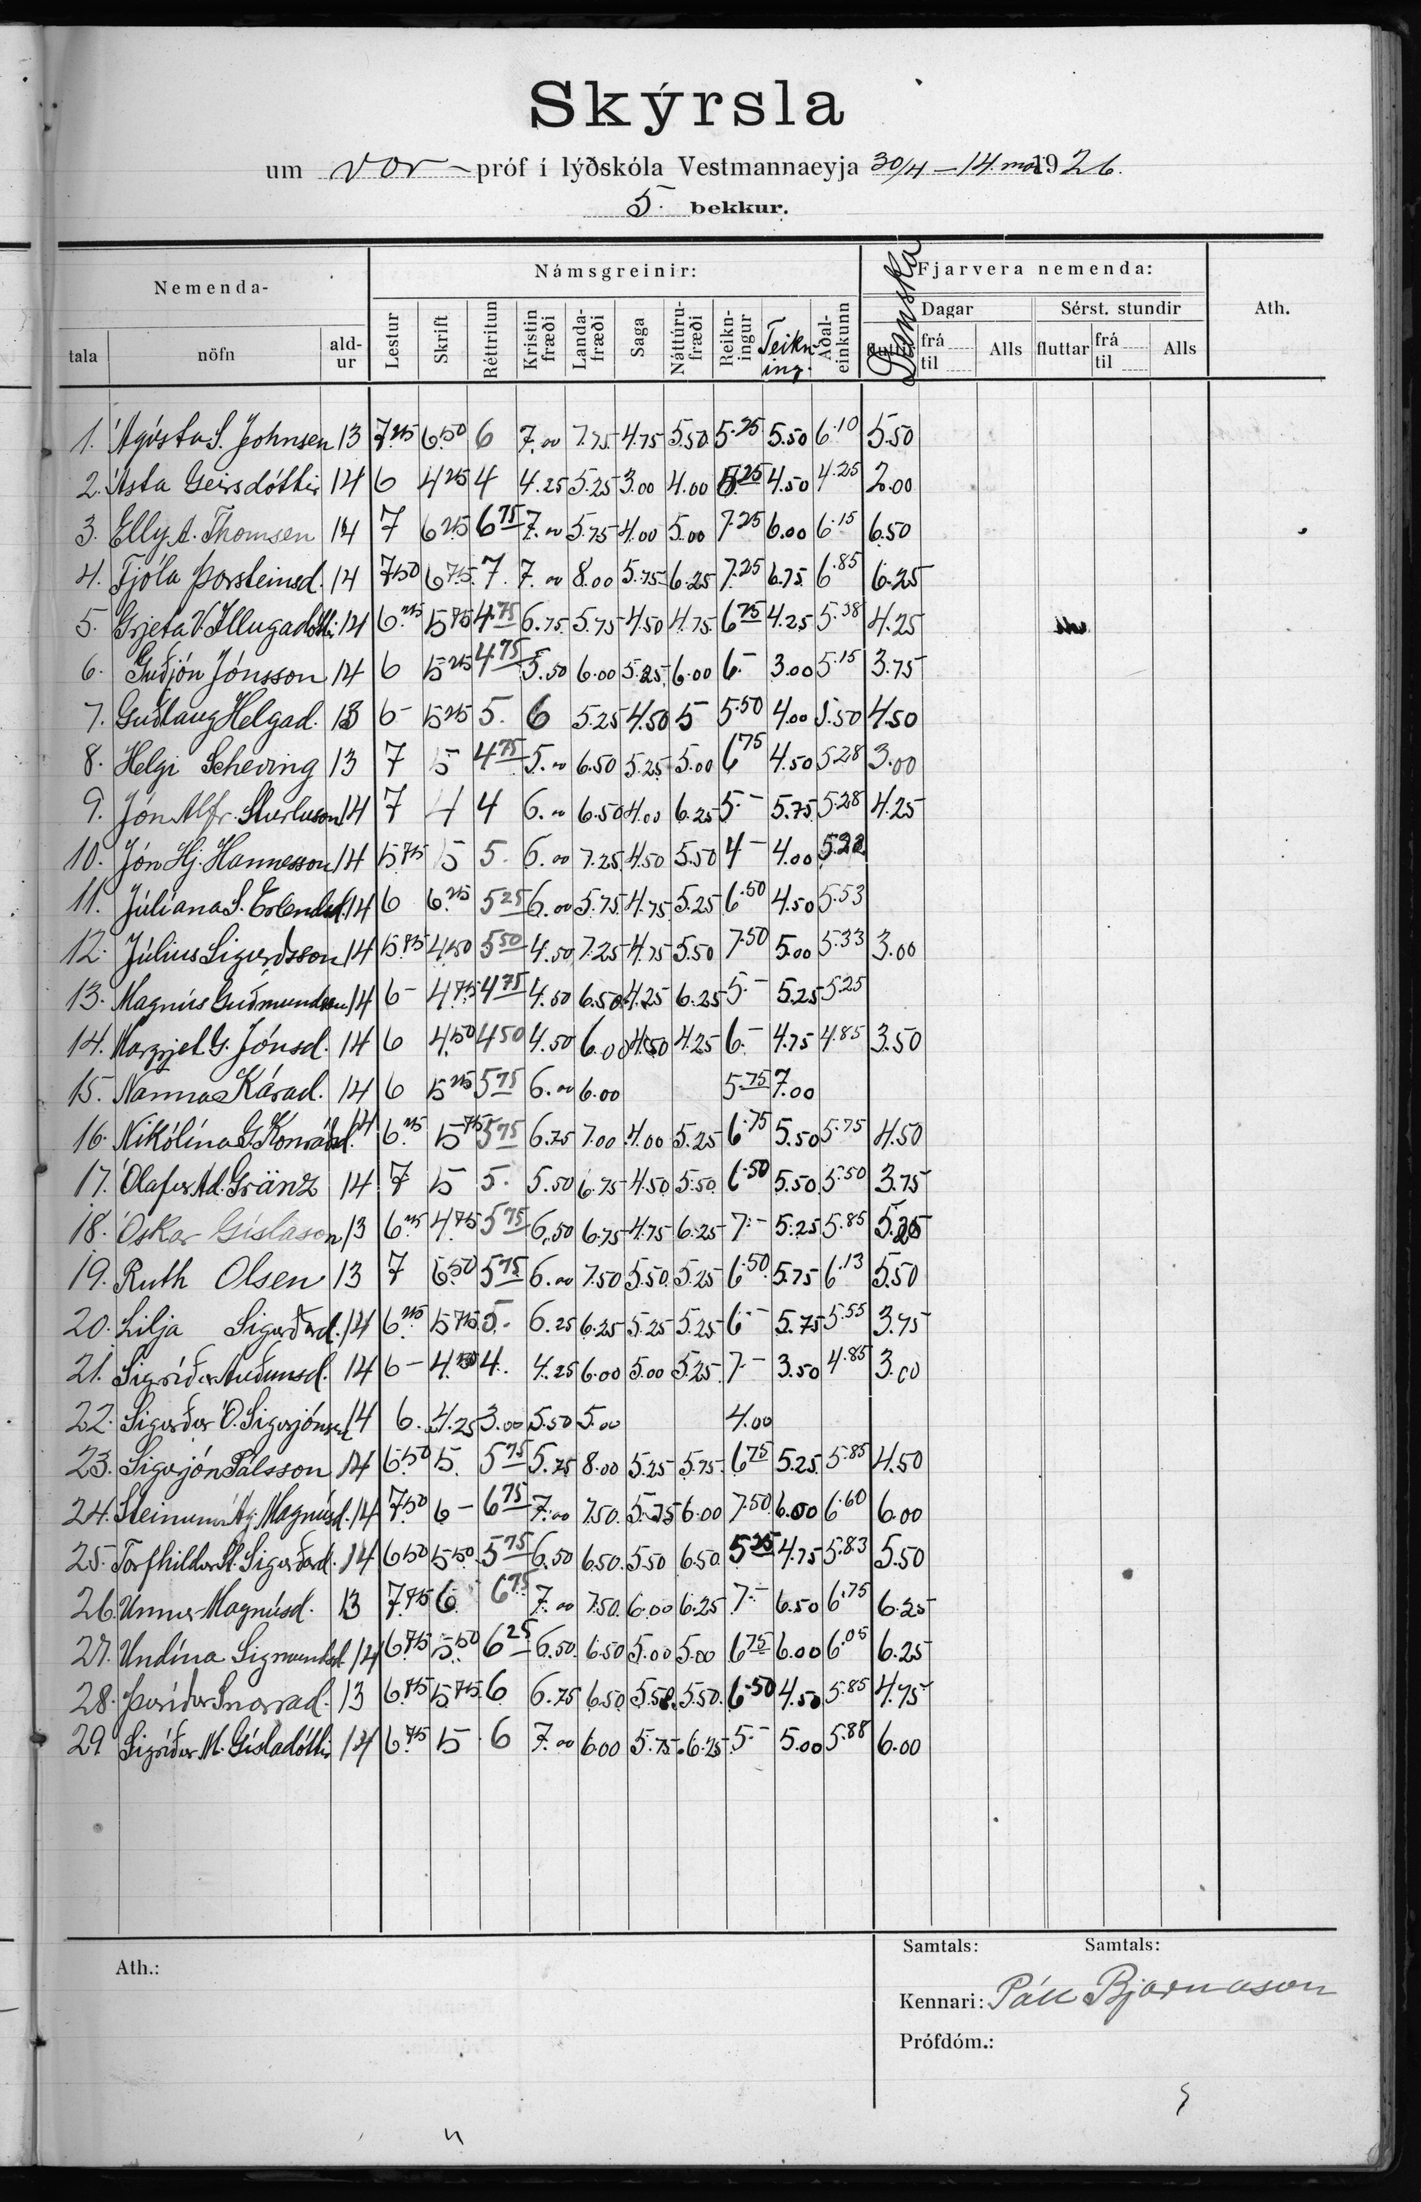 Skýrsla
um vor- próf í lýðskóla Vestmannaeyja 30/4 - 14. maí 1926.
5. bekkur.
Nemenda- Námsgreinir: Danska Fjarvera nemenda: Ath.
Dagar Sérst. stundir
tala nöfn ald-ur Lestur Skrift Réttritun Kristinfræði Landa-fræði Saga Náttúru-fræði Reikn-ingur Teikn-ing. Aðal-einkunn frá til Alls fluttar frá til Alls
1. Ágústa S. Johnsen 13 7.25 6.50 6 7.00 7.75 4.75 5.50 5.25 5.50 6.10 5.50
2. Ásta Geirsdóttir 14 6 4.25 4 4.25 5.25 3.00 4.00 5.25 4.50 4.25 2.00
3. Elly A. Thomsen 14 7 6.25 6.75 7.00 5.75 4.00 5.00 7.25 6.00 6.15 6.50
4. Fjóla Þorsteinsd. 14 7.50 6.75 7. 7.00 8.00 5.75 6.25 7.25 6.75 6.85 6.25
5. Grjeta V. Illugadóttir 14 6.25 5.75 4.75 6.75 5.75 4.50 4.75 6.75 4.25 5.38 4.25
6. Guðjón Jónsson 14 6 5.25 4.75 5.50 6.00 5.25 6.00 6.- 3.00 5.15 3.75
7. Guðlaug Helgad. 13 6- 5.25 5. 6 5.25 4.50 5 5.50 4.00 5.50 4.50
8. Helgi Scheving 13 7 5 4.75 5.00 6.50 5.25 5.00 6.75 4.50 5.28 3.00
9. Jón Alfr. Sturluson 14 7 4 4 6.00 6.50 4.00 6.25 5.- 5.75 5.28 4.25
10. Jón Hj. Hannesson 14 5.75 5 5. 6.00 7.25 4.50 5.50 4- 4.00 5.22
11. Júliana S. Erlendsd. 14 6 6.25 5.25 6.00 5.75 4.75 5.25 6.50 4.50 5.53
12. Július Sigurðsson 14 5.75 4.50 5.50 4.50 7.25 4.75 5.50 7.50 5.00 5.33 3.00
13. Magnús Guðmundsson 14 6- 4.75 4.75 4.50 6.50 4.25 6.25 5.- 5.25 5.25
14. Margrjet G. Jónsd. 14 6 4.50 4.50 4.50 6.00 4.50 4.25 6.- 4.75 4.85 3.50
15. Nanna Kárad. 14 6 5.25 5.75 6.00 6.00 5.75 7.00
16. Nikólína G. Konráðsd. 14 6.25 5.75 5.75 6.25 7.00 4.00 5.25 6.75 5.50 5.75 4.50
17. Ólafur Ad. Gränz 14 7 5 5. 5.50 6.75 4.50 5.50 6.50 5.50 5.50 3.75
18. Óskar Gíslason 13 6.25 4.75 5.75 6.50 6.75 4.75 6.25 7.- 5.25 5.85 5.25
19. Ruth Olsen 13 7 6.50 5.75 6.00 7.50 5.50 5.25 6.50 5.75 6.13 5.50
20. Lilja Sigurðard. 14 6.25 5.75 5. 6.25 6.25 5.25 5.25 6- 5.75 5.55 3.75
21. Sigríður Auðunsd. 14 6- 4.50 4. 4.25 6.00 5.00 5.25 7.- 3.50 4.85 3.00
22. Sigurður Ó. Sigurjónsson 14 6. 4.25 3.00 5.50 5.00 4.00
23. Sigurjón Pálsson 14 6.50 5. 5.75 5.75 8.00 5.25 5.75 6.75 5.25 5.85 4.50
24. Steinunn Ág. Magnúsd. 14 7.50 6- 6.75 7.00 7.50 5.75 6.00 7.50 6.00 6.60 6.00
25. Torfhildur St. Sigurðard. 14 6.50 5.50 5.75 6.50 6.50 5.50 6.50 5.25 4.75 5.83 5.50
26. Unnur Magnúsd. 13 7.75 6 6.75 7.00 7.50 6.00 6.25 7.- 6.50 6.75 6.25
27. Undína Sigmundsd. 14 6.75 5.50 6.25 6.50 6.50 5.00 5.00 6.75 6.00 6.05 6.25
28. Þuríður Snorrad. 13 6.75 5.75 6 6.75 6.50 5.50 5.50 6.50 4.50 5.85 4.75
29. Sigríður M. Gísladóttir 14 6.75 5 6 7.00 6.00 5.75 6.25 5.- 5.00 5.88 6.00
Ath.:
Samtals: Samtals:
Kennari: Páll Bjarnason
Prófdóm.: